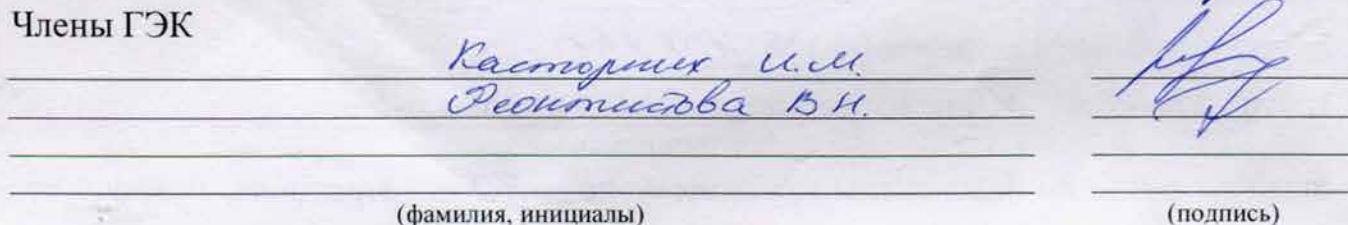 Члены ГЭК
Касторных И.М.
Феоктистова В Н.
(фамилия, инициалы) (подпись)